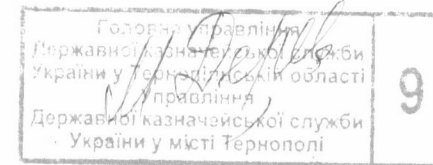 Головне управління
Державної казначейської служби
України у Тернопільській області
Управління
Державної казначейської служби
України у місті Тернополі
9